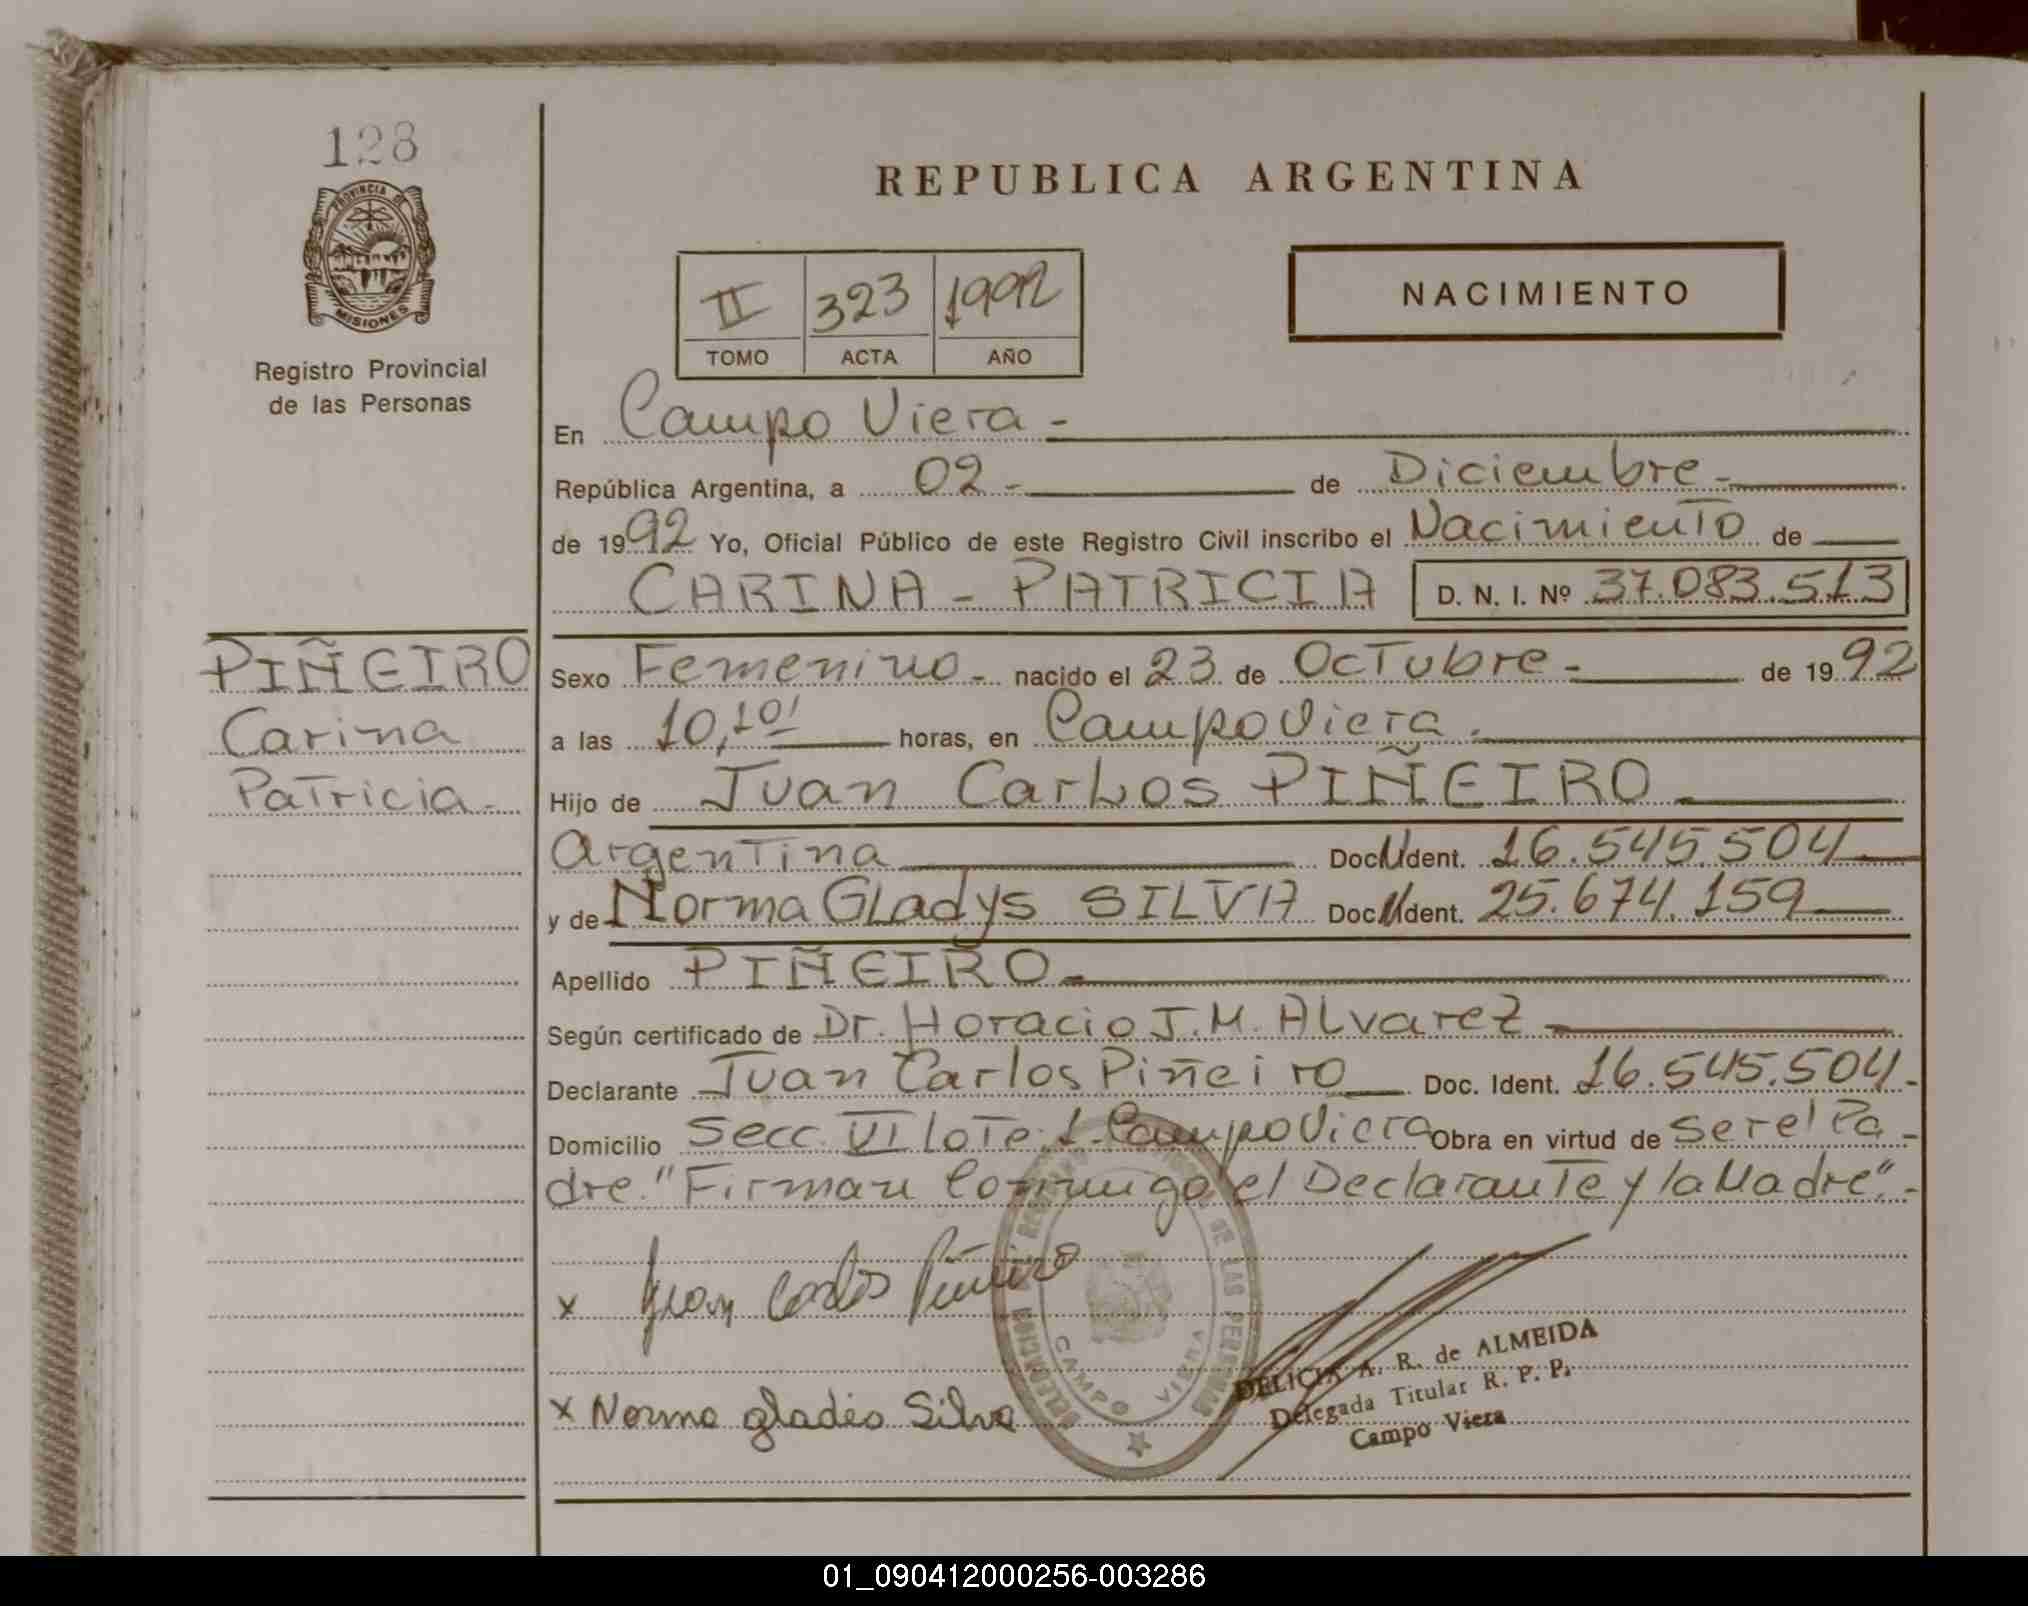 128
PROVINCIA DE
MISIONES
Registro Provincial
de las Personas
REPUBLICA ARGENTINA
II 323 1992
TOMO ACTA AÑO
NACIMIENTO
En Campo Viera -
República Argentina, a 02 - de Diciembre -
de 1992 Yo, Oficial Público de este Registro Civil inscribo el Nacimiento de
CARINA - PATRICIA D. N. I. Nº 37.083.513
PIÑEIRO
Carina
Patricia -
Sexo Femenino - nacido el 23 de Octubre - de 1992
a las 10,10' horas, en Campo Viera.
Hijo de Juan Carlos PIÑEIRO
Argentina Doc. Ident. 16.545.504
y de Norma Gladys SILVA Doc. Ident. 25.674.159
Apellido PIÑEIRO
Según certificado de Dr. Horacio J. M. Alvarez
Declarante Juan Carlos Piñeiro Doc. Ident. 16.545.504 -
Domicilio Secc. VI lote 1 - Campo Viera Obra en virtud de ser el Pa -
dre. "Firman conmigo el Declarante y la Madre". -
x Juan Carlos Piñeiro
x Norma gladis Silva
CAMPO VIERA
DELICIA A. R. de ALMEIDA
Delegada Titular R. P. P.
Campo Viera
01_090412000256-003286